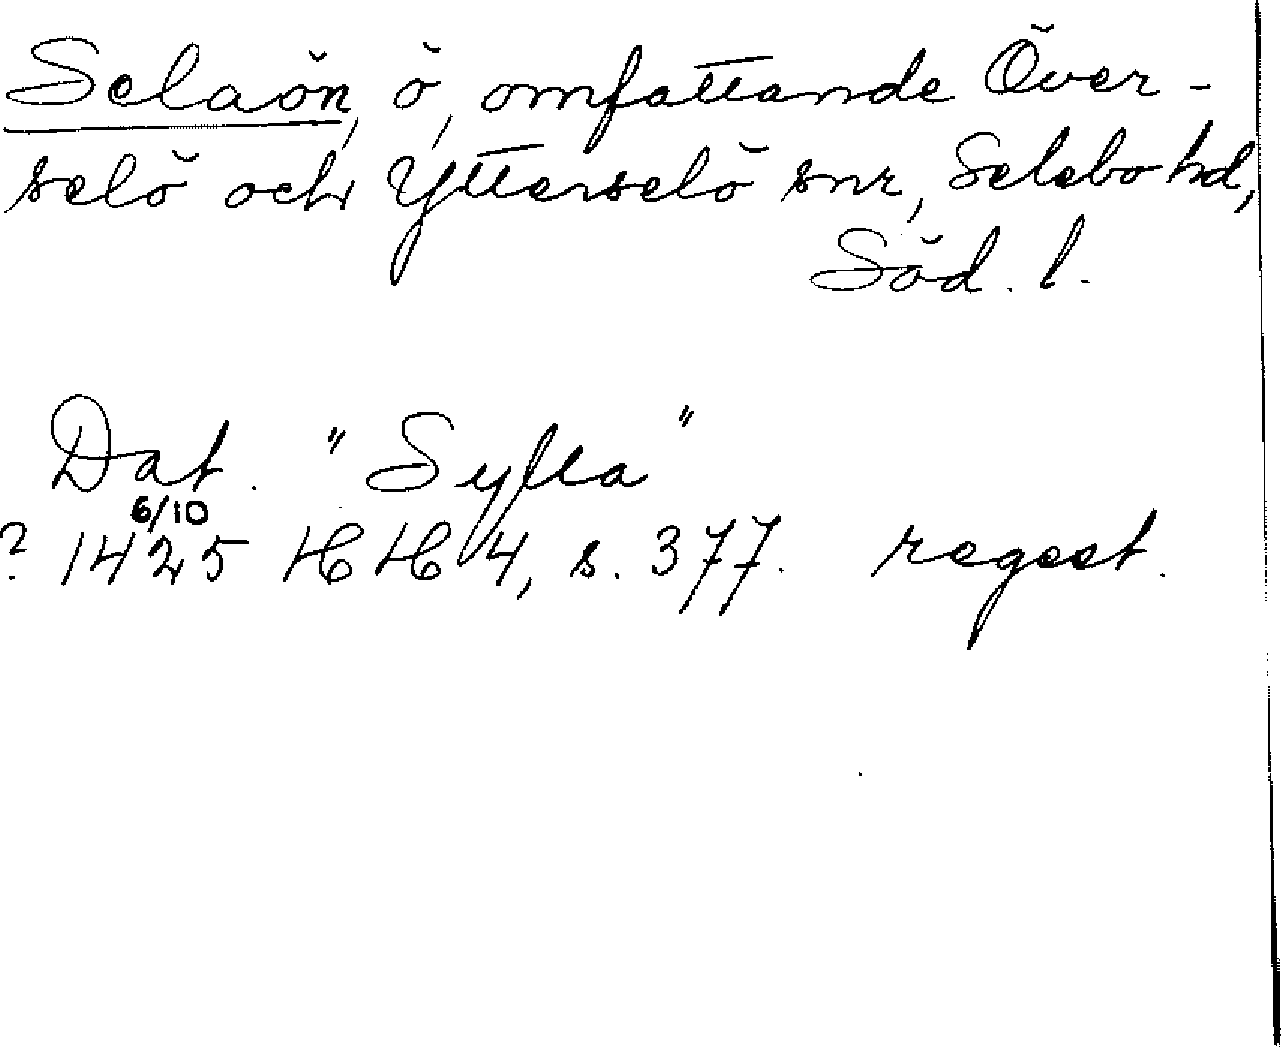 Selaön, ö, omfattande Över-
selö och Ytterselö snr, Selebo hd,
Söd. l.
Dat. "Sylla"
6/10
? 1425 HH 4, s. 377. regest.